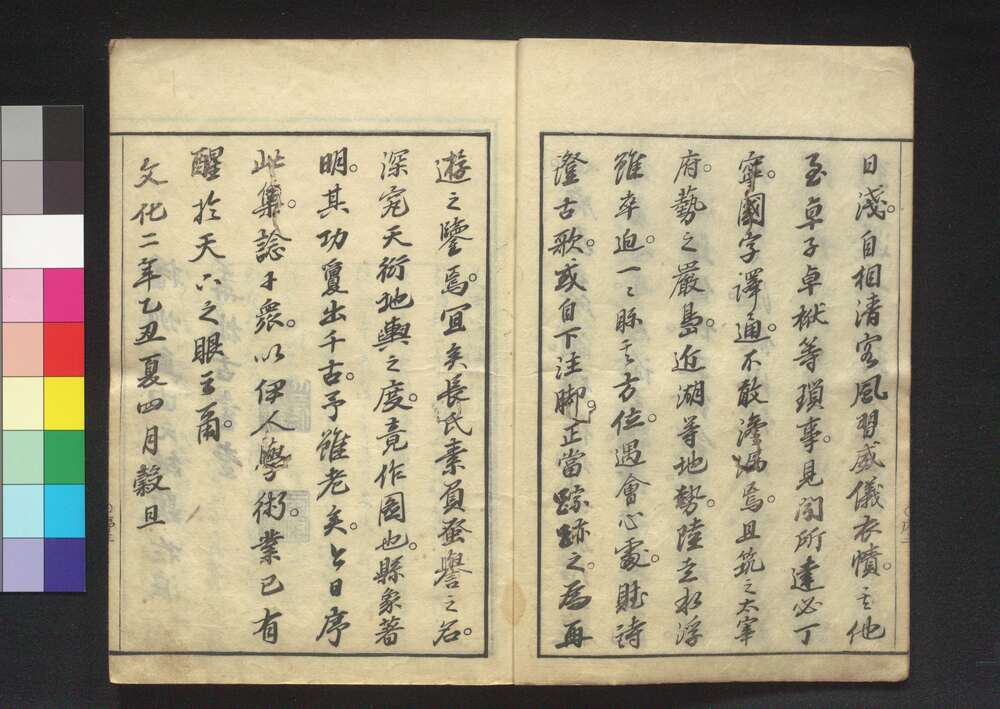 日淺。自相清客風習威儀衣幘。其他
至卓子卓袱等瑣事。見聞所逮必丁
寧。國字譯通。不敢濳漏焉。且筑之太宰
府。藝之嚴島。近湖等地勢。陸走水浮
雖卒迫。一々眎其方位。遇會心處。賦詩
證古歌。或自下注脚。正當蹤跡之。為再
遊之鑒焉。宜矣長氏素負發譽之名。
深究天衍地輿之度。竟作圖也。縣象著
明。其功夐出千古。予雖老矣。今日序
此集。諗于衆。以伊人學術。業已有
醒於天下之眼云爾。
文化二年乙丑夏四月穀旦